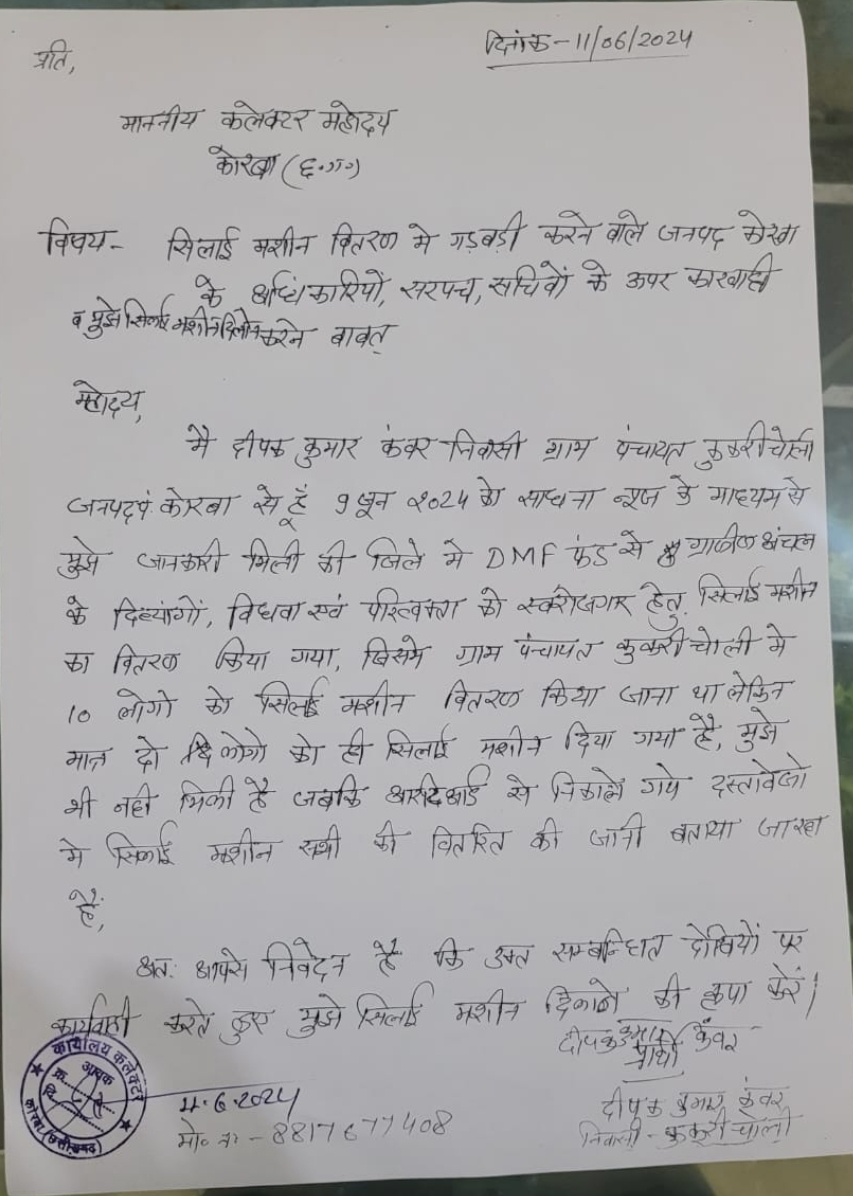 दिनांक - 11/06/2024
प्रति,
माननीय कलेक्टर महोदय
कोरबा (छ.ग.)
विषय - सिलाई मशीन वितरण मे गड़बड़ी करने वाले जनपद कोरबा
के अधिकारियों, सरपंच, सचिवों के ऊपर कारवाही
व मुझे सिलाई मशीन दिलाने करने बाबत्
महोदय,
मै दीपक कुमार कंवर निवासी ग्राम पंचायत कुकरीचोली
जनपद पं. कोरबा से हूँ 9 जून 2024 को साधना न्यूज के माध्यम से
मुझे जानकारी मिली की जिले मे DMF फंड से ग्रामीण अंचल
के दिव्यांगों, विधवा एवं परित्यक्ता को स्वरोजगार हेतु सिलाई मशीन
का वितरण किया गया, जिसमे ग्राम पंचायत कुकरीचोली मे
10 लोगो को सिलाई मशीन वितरण किया जाना था लेकिन
मात्र दो लोगो को ही सिलाई मशीन दिया गया है, मुझे
भी नही मिली है जबकि आरटीआई से निकाले गये दस्तावेजो
मे सिलाई मशीन सभी को वितरित की जानी बताया जा रहा
है,
अतः आपसे निवेदन है कि उक्त सम्बन्धित दोषियों पर
कार्यवाही करते हुए मुझे सिलाई मशीन दिलाने की कृपा करें।
दीपक कुमार कंवर
प्रार्थी
दीपक कुमार कंवर
निवासी - कुकरीचोली
11.6.2024
मो० न० - 8817677408
कार्यालय कलेक्टर
आवक
कोरबा (छत्तीसगढ़)